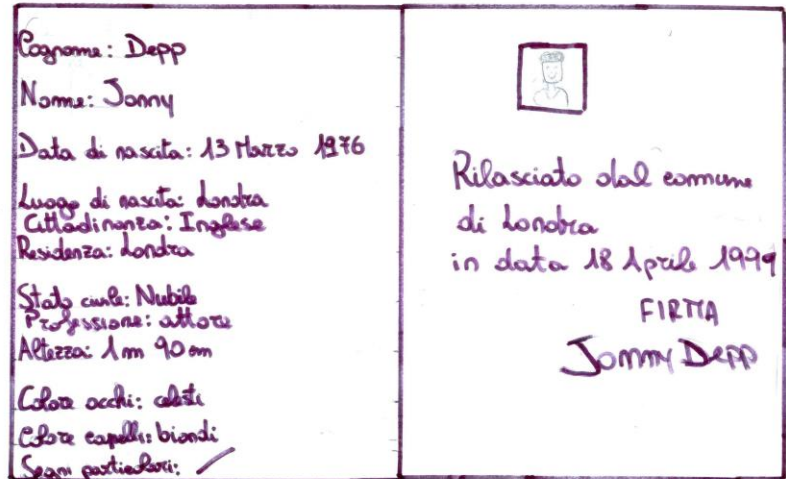 Cognome: Depp
Nome: Jonny
Data di nascita: 13 Marzo 1976
Luogo di nascita: Londra
Cittadinanza: Inglese
Residenza: Londra
Stato civile: Nubile
Professione: attore
Altezza: 1 m 90 cm
Colore occhi: celesti
Colore capelli: biondi
Segni particolari: /
Rilasciato dal comune
di Londra
in data 18 Aprile 1999
FIRMA
Jonny Depp